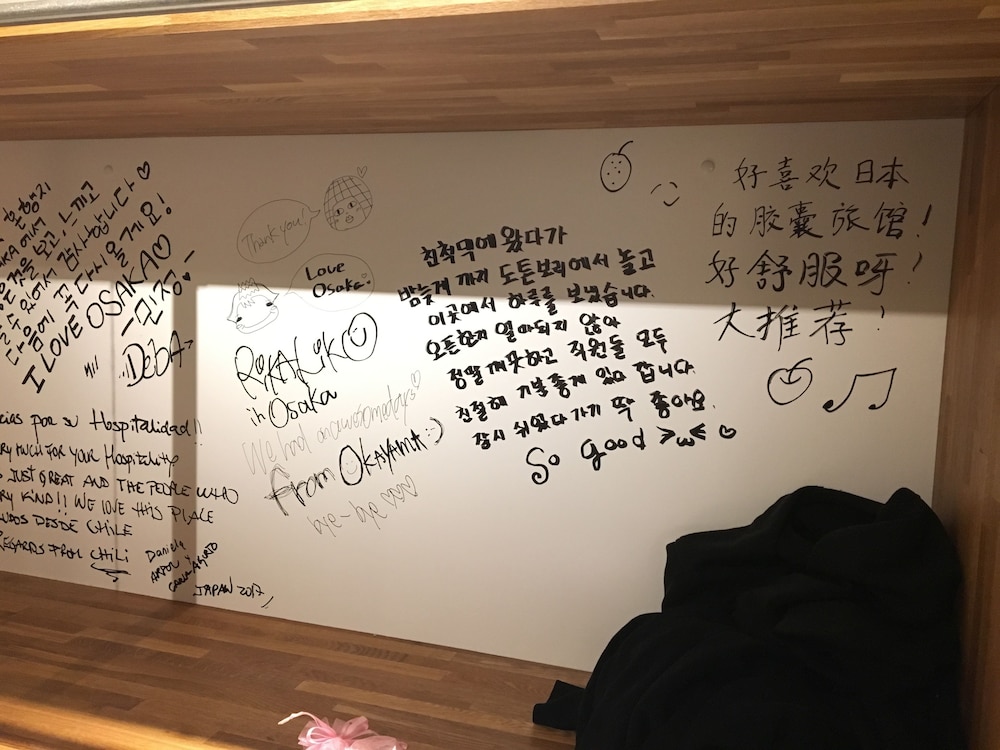 보고, 느끼고
감사합니다♡
다음에 꼭 다시 올게요!
I LOVE OSAKA♡
-민정-
DebA
Hospitalidad!!
MUCH FOR YOUR HOSPITALITY
JUST GREAT AND THE PEOPLE WHO
KIND!! WE LOVE THIS PLACE
DESDE CHILE
REGARDS FROM CHILI
Daniela
JAPAN 2017
Thank you!
Love
Osaka.
in Osaka
We had an awesome days♡
from OKAYAMA :)
bye-bye ♡♡♡
친척댁에 왔다가
밤늦게 까지 도톤보리에서 놀고
이곳에서 하루를 보냈습니다.
오픈한지 얼마되지 않아
정말 깨끗하고 직원들 모두
친절해 기분좋게 있다 갑니다.
잠시 쉬었다 가기 딱 좋아요.
So good >ω< ♡
好喜欢日本
的胶囊旅馆!
好舒服呀!
大推荐!